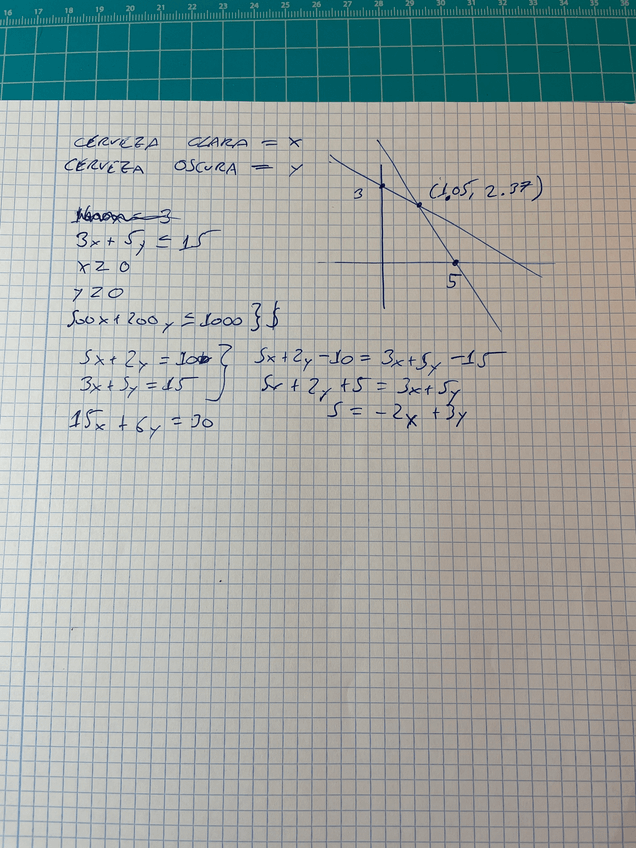 16 17 18 19 20 21 22 23 24 25 26 27 28 29 30 31 32 33 34 35 36
CERVEZA CLARA = X
CERVEZA OSCURA = Y
3x + 5y ≤ 15
x ≥ 0
y ≥ 0
500x + 200y ≤ 1000 } $
5x + 2y = 10
3x + 5y = 15
15x + 6y = 30
5x + 2y - 10 = 3x + 5y - 15
5x + 2y + 5 = 3x + 5y
5 = -2x + 3y
3
(1.05, 2.37)
5